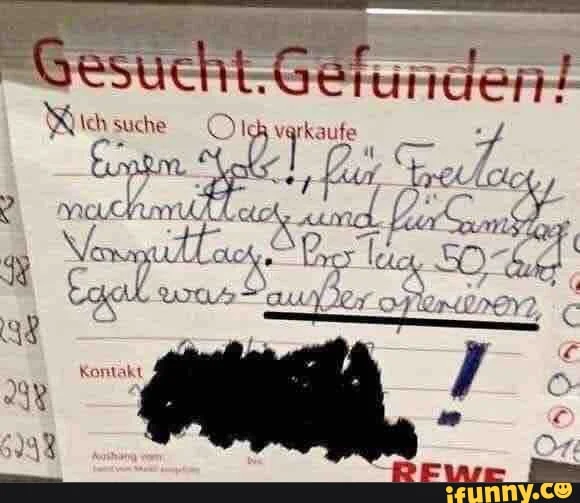 Gesucht.Gefunden!
Ich suche Ich verkaufe
Einen Job!, für Freitag,
nachmittag und für Samstag
Vormittag. Pro Tag 50,- Euro.
Egal was - außer operieren.
!
Kontakt
Aushang vom:
bis:
REWE
298
298
298
6298
ifunny.co